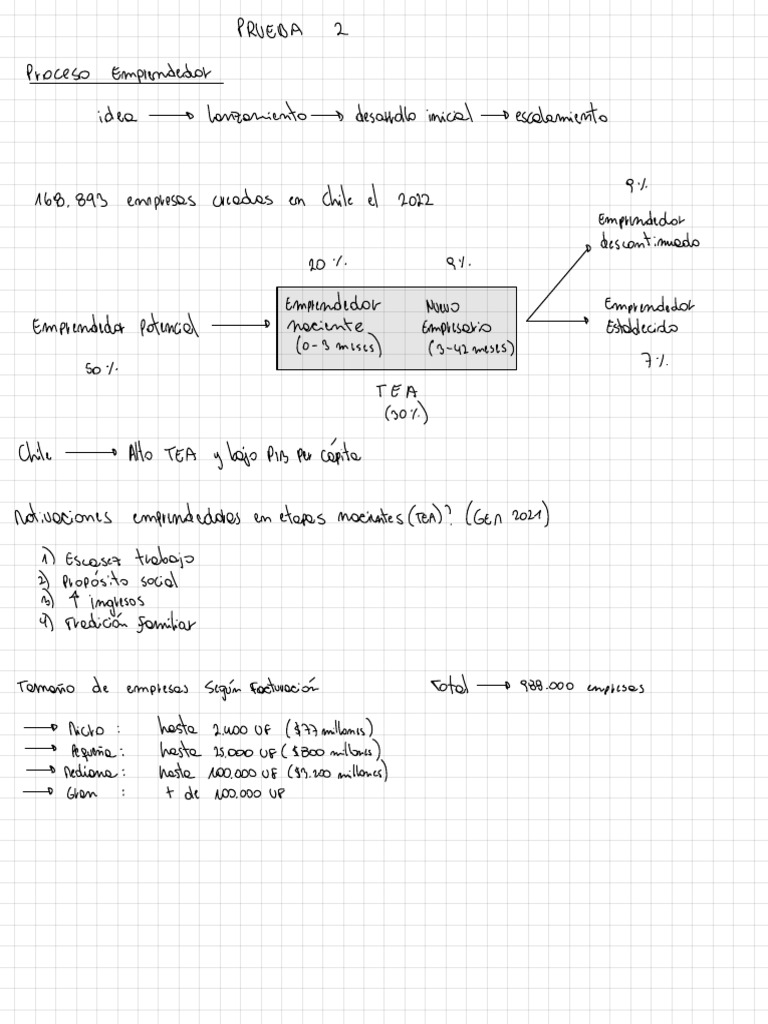 PRUEBA 2
Proceso Emprendedor
idea → lanzamiento → desarrollo inicial → escalamiento
168.893 empresas creadas en Chile el 2022
9%
Emprendedor
descontinuado
20% 9%
Emprendedor Potencial →
50%
Emprendedor
naciente
(0-3 meses)
Nuevo
Empresario
(3-42 meses)
Emprendedor
Establecido
7%
TEA
(30%)
Chile → Alto TEA y bajo PIB per cápita
Motivaciones emprendedoras en etapas nacientes (TEA)? (GEM 2021)
1) Escasez trabajo
2) Propósito social
3) ↑ ingresos
4) Tradición familiar
Tamaño de empresas según facturación
Total → 988.000 empresas
→ Micro : hasta 2.400 UF ($77 millones)
→ Pequeña : hasta 25.000 UF ($800 millones)
→ Mediana : hasta 100.000 UF ($3.200 millones)
→ Gran : + de 100.000 UF